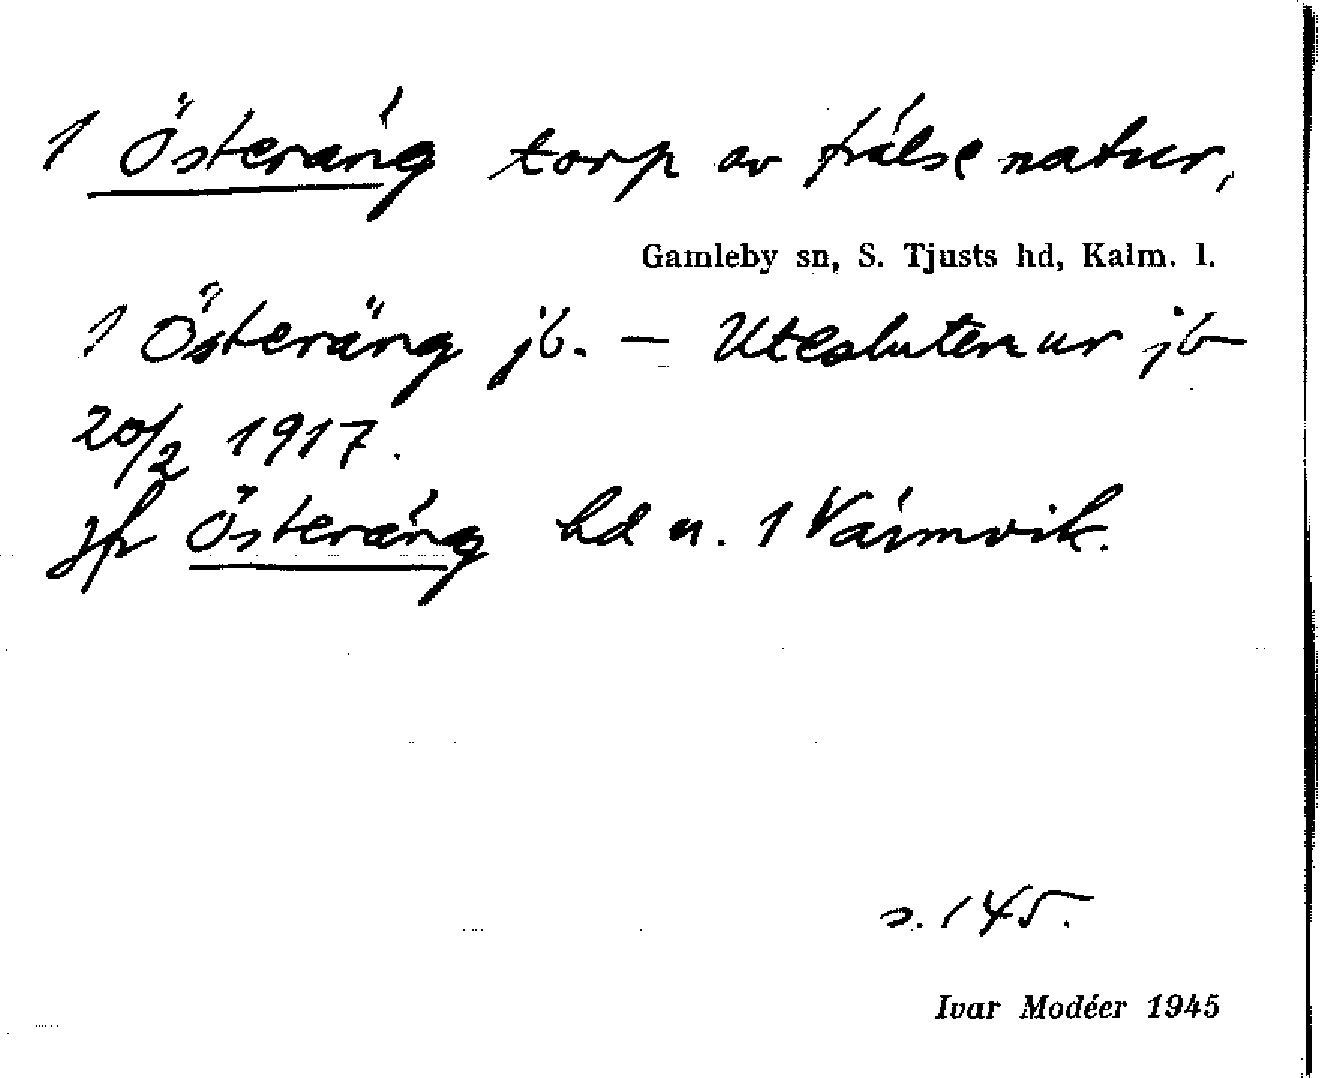 1 Österäng torp av frälse natur,
Gamleby sn, S. Tjusts hd, Kalm. l.
1 Österäng jb. – Utesluten ur jb
20/2 1917.
jfr Österäng hd u. 1 Värmvik.
s. 145.
Ivar Modéer 1945